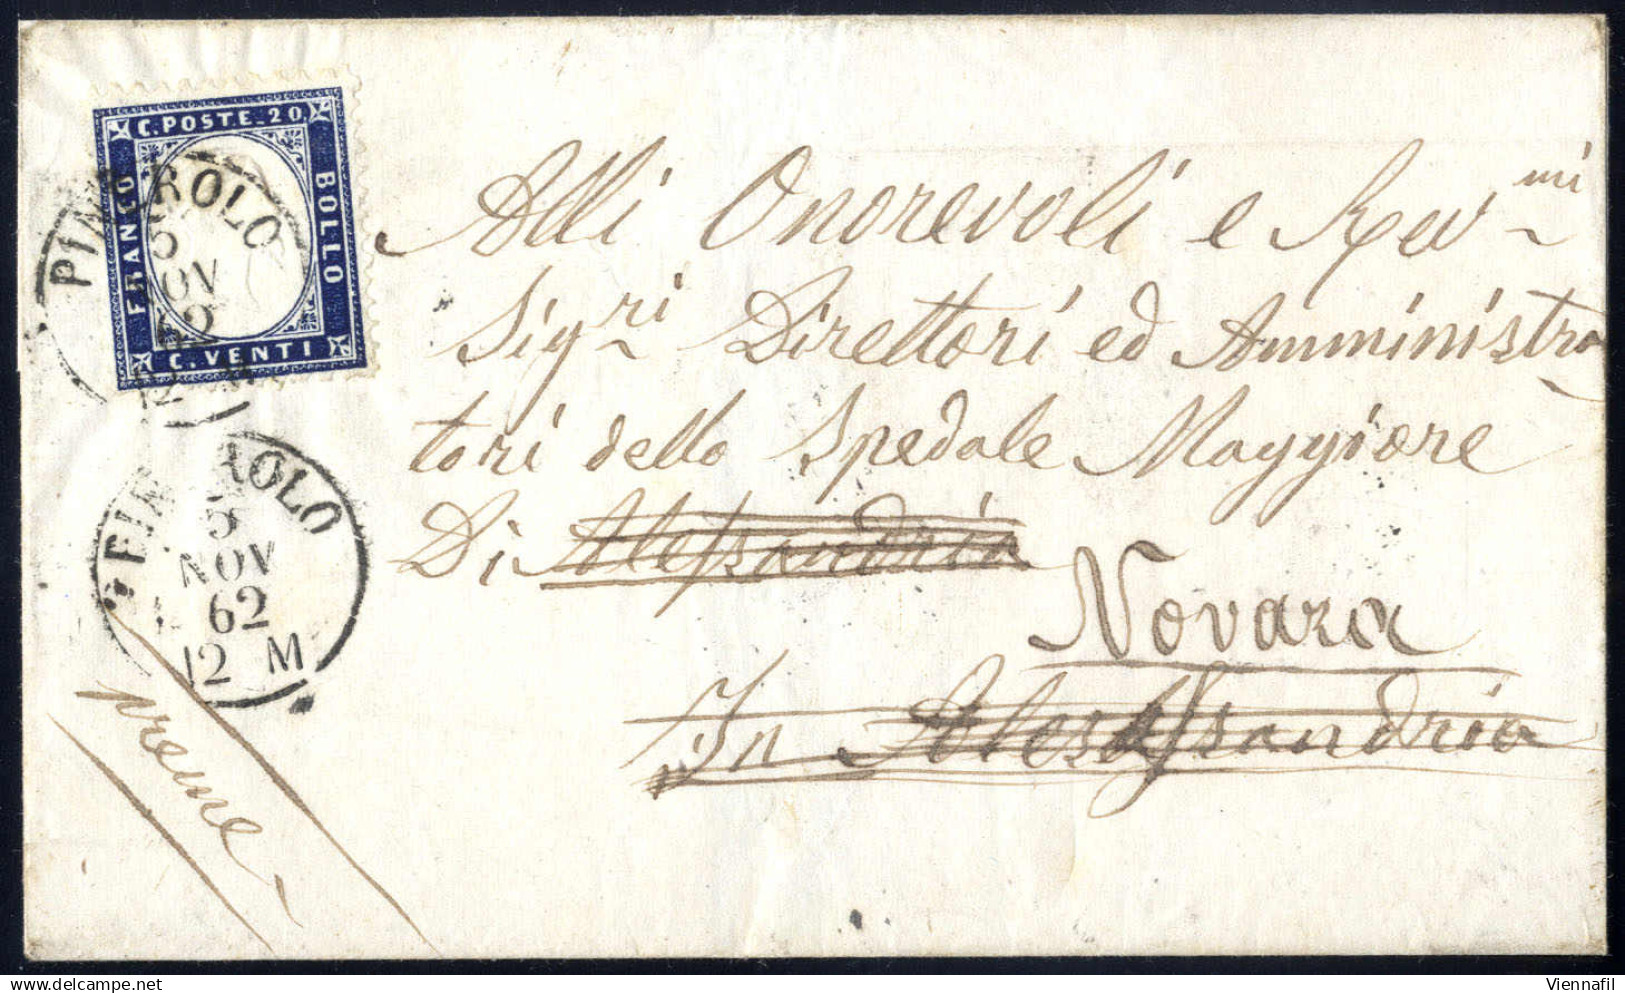 C. POSTE. 20
FRANCO
BOLLO
C. VENTI
PINEROLO
5
NOV
62
12 M
PINEROLO
5
NOV
62
12 M
Alli Onorevoli e Rev.mi
Sig.ri Direttori ed Amministra
tori dello Spedale Maggiore
Di Alessandria
Novara
In Alessandria
preme
Viennafil